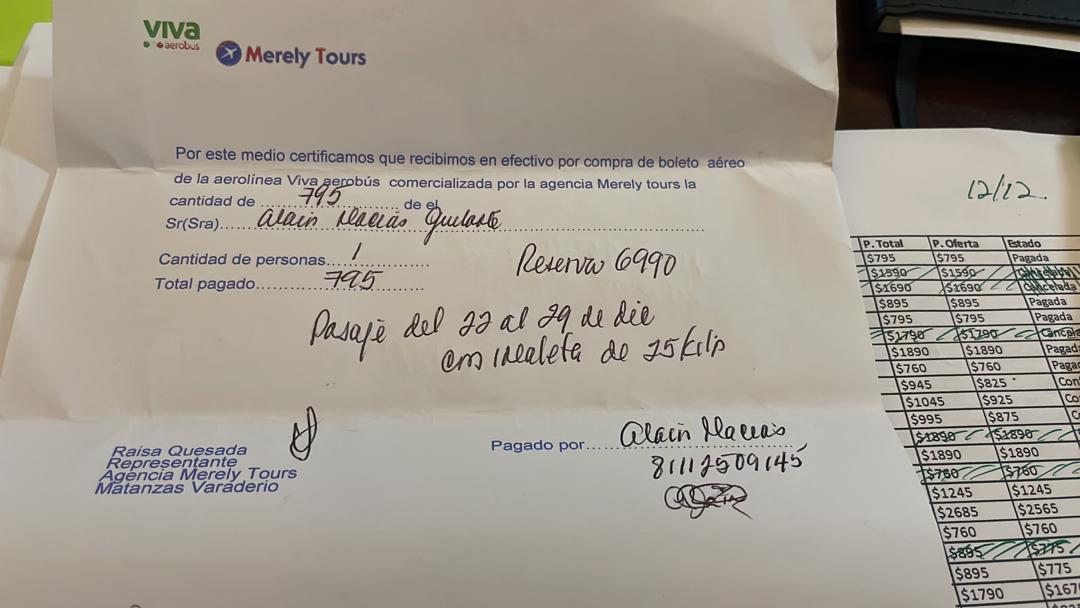 viva
aerobus
Merely Tours
Por este medio certificamos que recibimos en efectivo por compra de boleto aéreo
de la aerolínea Viva aerobús comercializada por la agencia Merely tours la
cantidad de ...795... de el
Sr(Sra)....Alain Macias
Cantidad de personas...1
Total pagado...795
Reserva 6990
Pasaje del 22 al 29 de dic
con maleta de 25 kilo
Raisa Quesada
Representante
Agencia Merely Tours
Matanzas Varaderio
Pagado por...Alain Macias
81112509145
12/12
P. Total P. Oferta Estado
$795 $795 Pagada
$1590 $1590 Cancelada
$1690 $1690 Cancelada
$895 $895 Pagada
$795 $795 Pagada
$1790 $1790 Cancela
$1890 $1890 Pagad
$760 $760 Pagad
$945 $825 Con
$1045 $925 Co
$995 $875 C
$1890 $1890
$1890 $1890
$760 $760
$1245 $1245
$2685 $2565
$760 $760
$895 $775
$895 $775
$1790 $167